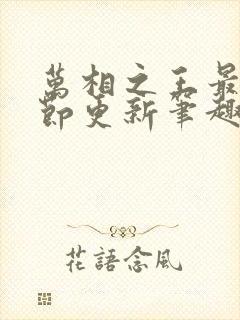 萬相之王最
節更新筆趣
花語念風